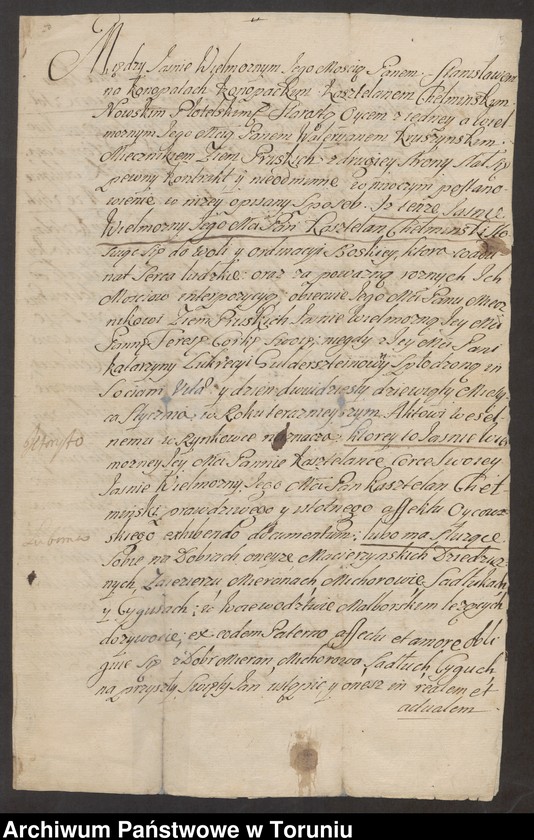 Między Jasnie Wielmoznym Jego Mością Panem Stanisławem
na Konopatach Konopackim Kasztelanem Chełmińskym
Nowskim Starostą Oycem z iedney a Wiel
moznym Jego Mcią Panem Waleryanem Kruszynskim
Miecznikiem Ziem Pruskich z drugiey strony stał się
pewny Kontrakt y nieodmienne wiecznym postano-
wienie w nizey opisany sposob. Iz tenze Jasnie
Wielmozny Jego Mć Pan Kasztelan Chełminski sto
suiąc się do woli y ordynacyi Boskiey, ktora
nat Serca ludzkie: oraz za powazną roznych Ich
Mosciow interpozycyą; obiecuie Jego Mći Panu Miecz-
nikowi Ziem Pruskich Jasnie Wielmozną Jey Mć
Pannę Teresę Corkę Swoię; niegdy z Jey Mći Pani
Katarzyny Lukrecyi Guldersteinowy Spłodzoną in
Sociam Vitæ y dzien dwudziesty dziewiąty Miesią
ca Stycznia, w Roku teraznieyszym Aktowi wesel
nemu w Rynkowce naznacza: ktorey to Jasnie Wiel
mozney Jey Mći Pannie Kasztelance Corce Swoiey
Jasnie Wielmozny Jego Mći Pan Kasztelan Cheł-
minski prawdziwego y istotnego affektu Oycow-
skiego exhibendo documentum; lubo ma słuzące
Sobie na Dobrach oneyze Macierzynskich Dziedzicz-
nych, Mieranach Michorowie, Sadłukach
y Cygusach; w Woiewodztwie Malborskim lezących
dozywocie, ex eodem Paterno affectu et amore obli
guie się z Dobr Mieran, Michorowa, Sadłuk Cyguch
na przyszły Swięty Jan ustąpic y onesz in realem et
actualem
Archiwum Państwowe w Toruniu